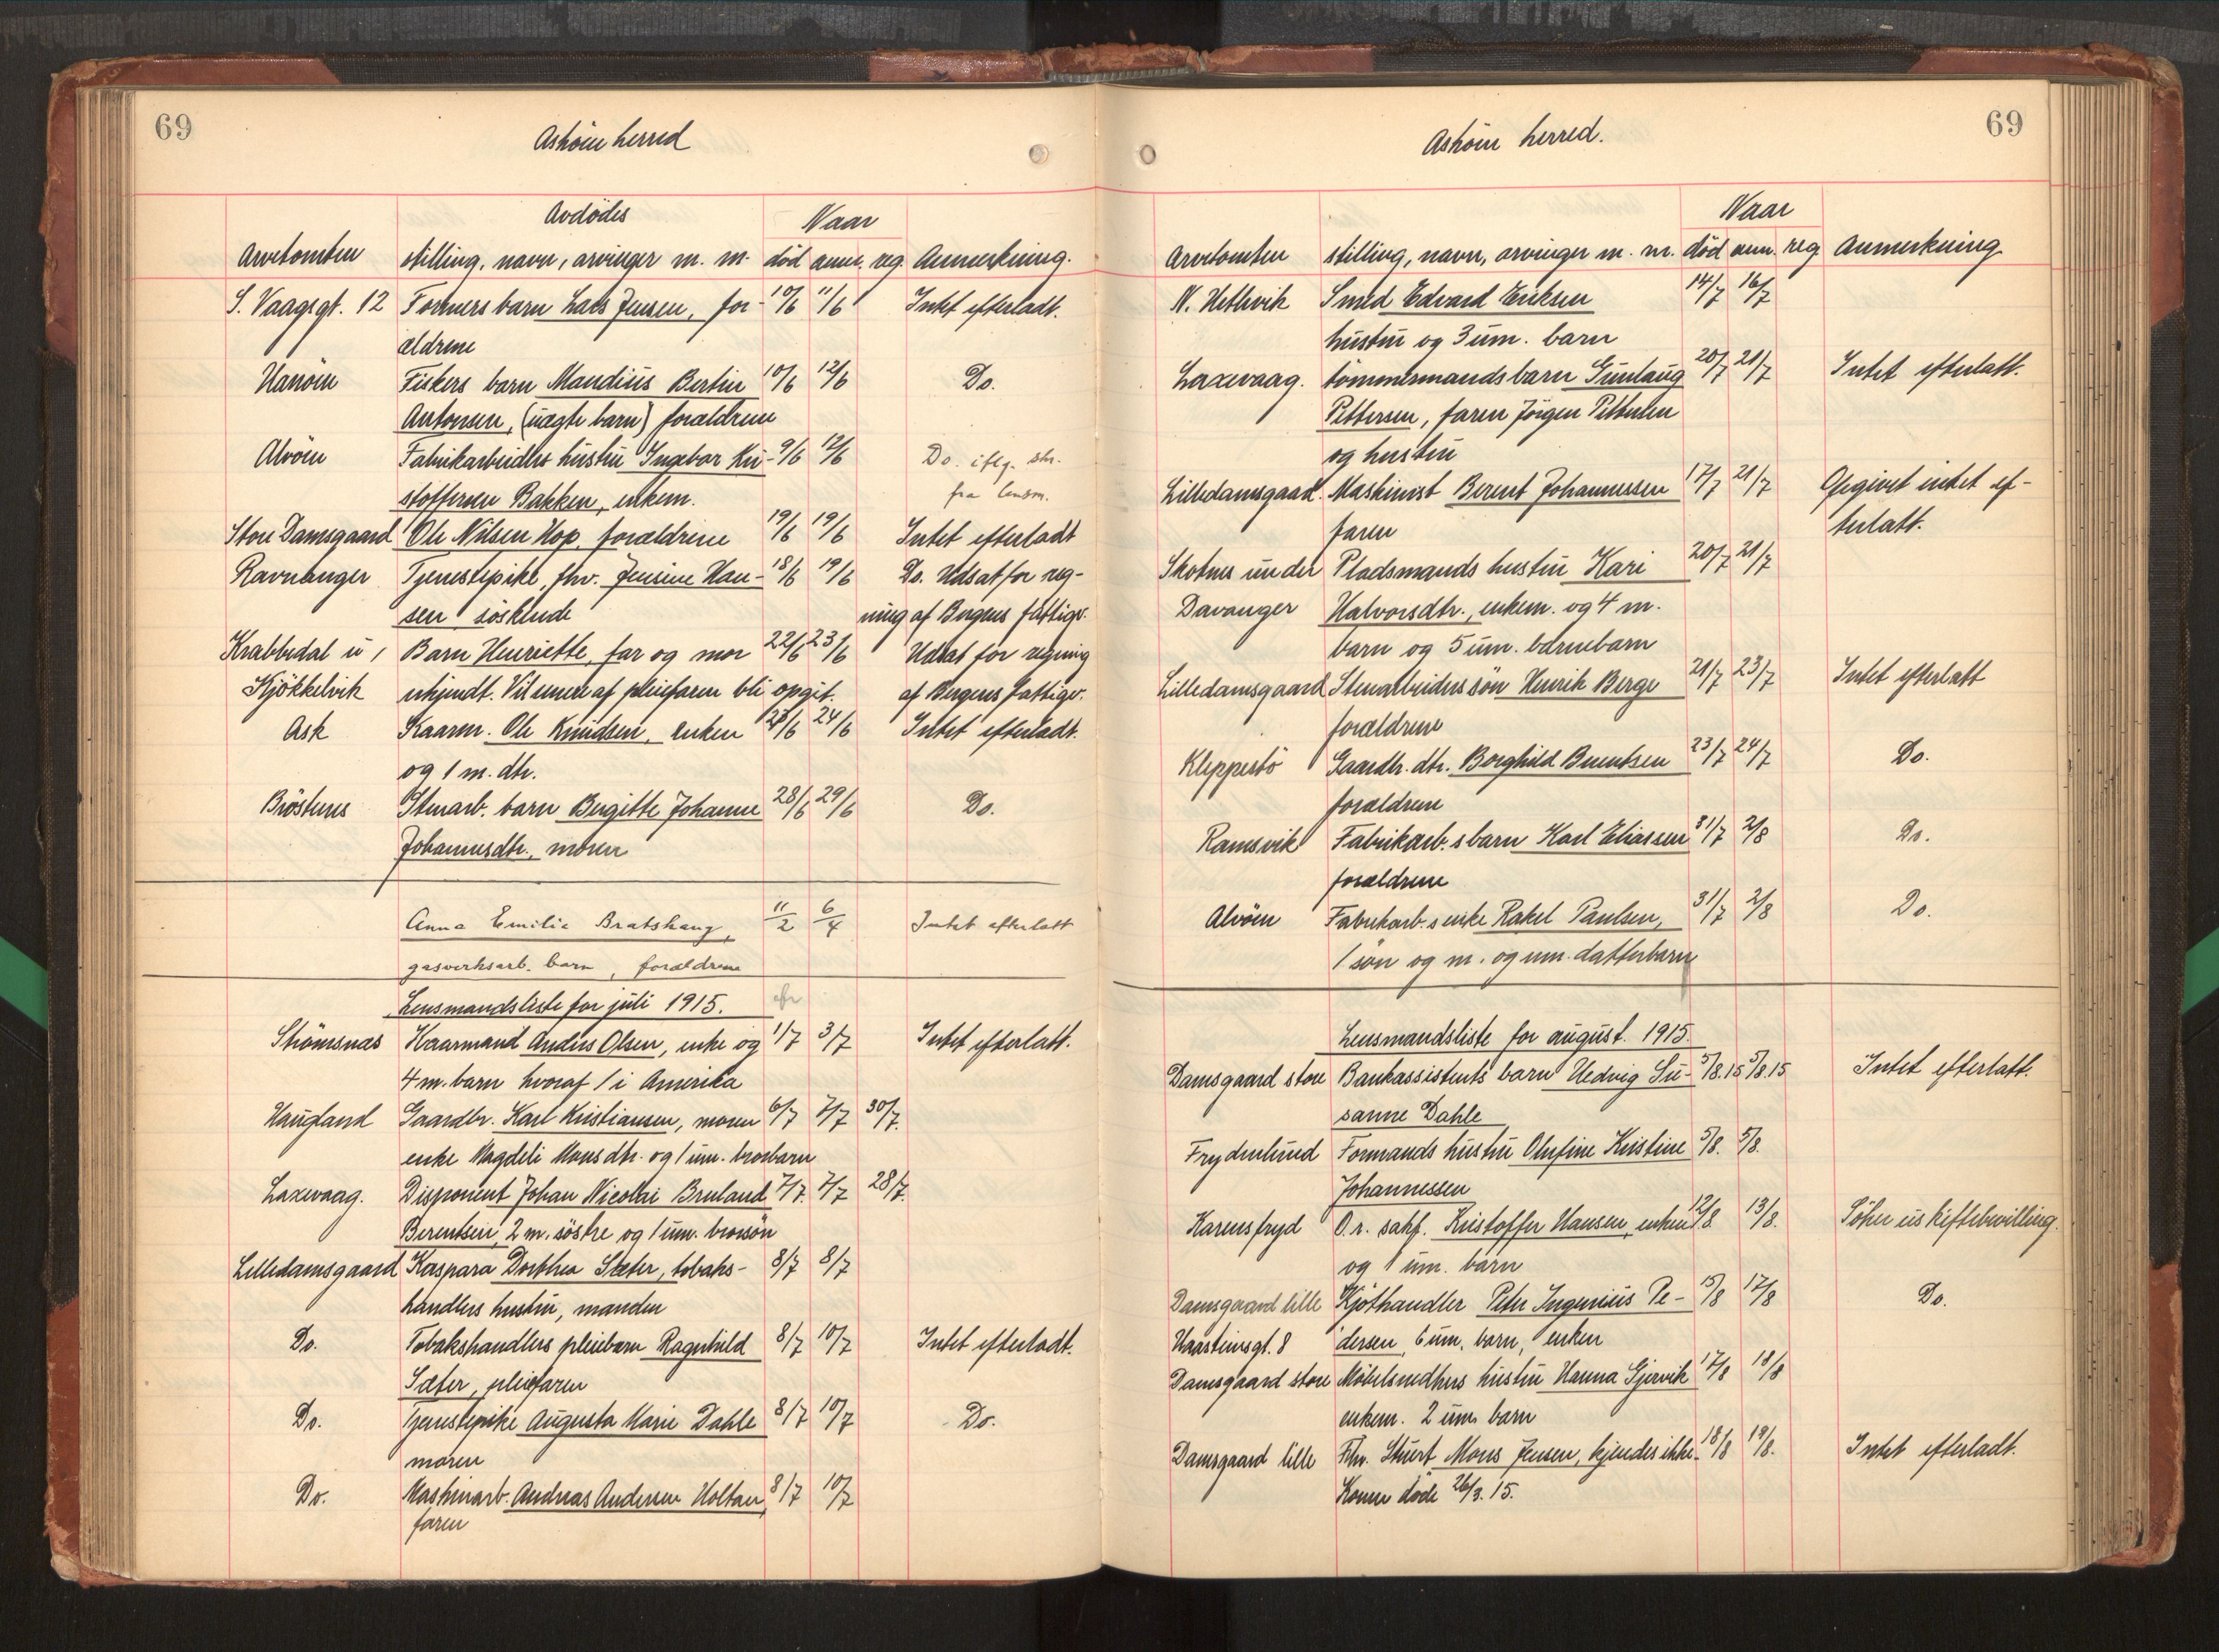 69
Askøin herred
Avdødes
Naar
Arvetomten stilling, navn, arvinger m. m. død anm. reg. Anmerkning.
S. Vaagsgt. 12 Formers barn Lars Jensen, for- 10/6 11/6 Intet efterladt.
ældrene
Hanøin Fiskers barn Mandius Bertin 10/6 12/6 Do.
Antonsen, (uægte barn) forældrene
Alvøen Fabrikarbeiders hustru Ingebor Kri- 9/6 12/6 Do. iflg. skr.
stoffersen Bakken, enkem. fra lensm.
Store Damsgaard Ole Nilsen Hop, forældrene 19/6 19/6 Intet efterladt
Ravnanger Tjenestepike, fhv. Jensine Han- 18/6 19/6 Do. Udsat for reg-
sen søskende ning af Bergens fattigv.
Krabbedal u/ Barn Henriette, far og mor 22/6 23/6 Udsat for regning
Kjøkkelvik ukjendt. Vil senere af pleiefaren bli opgit. af Bergens fattigv.
Ask Kaarm. Ole Knudsen, enken 23/6 24/6 Intet efterladt.
og 1 m. dtr.
Brøstenes Stenarb. barn Birgitte Johanne 28/6 29/6 Do.
Johannesdtr., moren
Anna Emilie Bratshaug, 11/2 6/4 Intet efterlatt
gasverksarb. barn, forældrene
Lensmandsliste for juli 1915.
Strømsnes Kaarmand Anders Olsen, enke og 1/7 3/7 Intet efterlatt.
4 m. barn hvoraf 1 i Amerika
Haugland Gaardbr. Karl Kristiansen, moren 6/7 7/7 30/7.
enke Magdeli Monsdtr. og 1 um. brorbarn
Laxevaag. Disponent Johan Nicolai Bruland 7/7. 7/7 28/7.
Berentsen, 2 m. søstre og 1 um. brorsøn
Lilledamsgaard Kaspara Dorthea Sæter, tobaks- 8/7 8/7
handlers hustru, manden
Do. Tobakshandlers pleiebarn Ragnhild 8/7 10/7 Intet efterladt.
Sæter, pleiefaren
Do. Tjenestepike Augusta Marie Dahle 8/7 10/7 Do.
moren
Do. Maskinarb. Andreas Andersen Holtan, 8/7 10/7
faren
69
Askøin herred.
Naar
Arvetomten stilling, navn, arvinger m. m. død anm. reg Anmerkning
N. Hetlevik Smed Edvard Eriksen 14/7 16/7
hustru og 3 um. barn
Laxevaag. tømmermands barn Gunlaug 20/7 21/7 Intet efterlatt.
Pettersen, faren Jørgen Pettersen
og hustru
Lilledamsgaard. Maskinist Berent Johannessen 17/7 21/7 Opgivet intet ef-
faren terlatt.
Skotnes under Pladsmands hustru Kari 20/7 21/7
Davanger Halvorsdtr., enkem. og 4 m.
barn og 5 um. barnebarn
Lilledamsgaard Stenarbeiders søn Henrik Berge 21/7 23/7 Intet efterlatt
forældrene
Kleppestø Gaardbr. dtr. Borghild Berentsen 23/7 24/7 Do.
forældrene
Ramsvik Fabrikarb.s barn Karl Eliassen 31/7 2/8 Do.
forældrene
Alvøen Fabrikarb.s enke Rakel Paulsen, 31/7 2/8 Do.
1 søn og m. og um. datterbarn
Lensmandsliste for august. 1915.
Damsgaard store Bankassistents barn Hedvig Su- 5/8.15 5/8.15 Intet efterlatt.
sanne Dahle
Frydenlund Formands hustru Olufine Kristine 5/8. 5/8.
Johannessen
Karensfryd O.r. sakf. Kristoffer Hansen, enken 12/8 13/8. Søker uskiftebevilling.
og 1 um. barn
Damsgaard lille Kjøthandler Peter Ingenius Pe- 15/8 17/8 Do.
Haasteinsgt. 8 dersen, 6 um. barn, enken
Damsgaard store Møbelsnedkers hustru Hanna Gjervik 17/8 18/8
enkem. 2 um. barn
Damsgaard lille Fhv. Stuert Mons Jensen, kjendes ikke. 18/8 19/8. Intet efterladt.
Konen døde 26/3. 15.